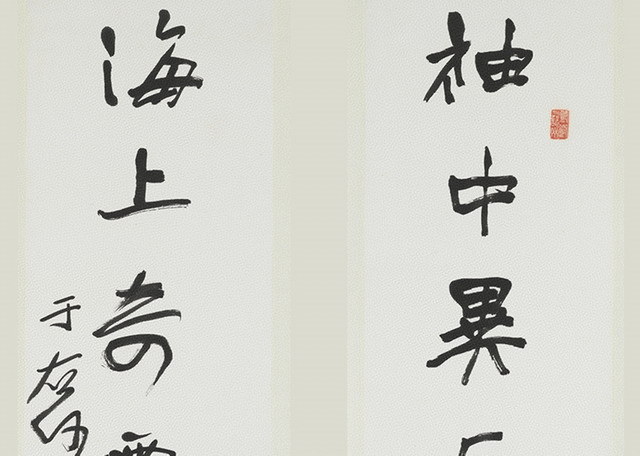 袖中異
海上奇
于右任